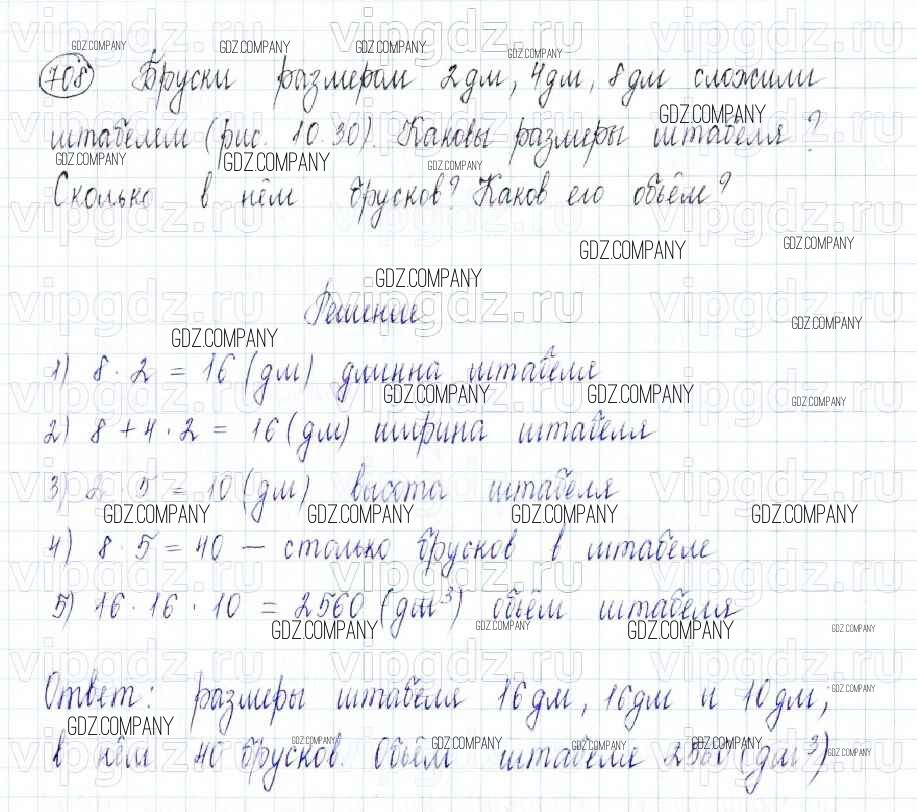 708 Бруски размером 2дм, 4дм, 8дм сложили
штабелем (рис. 10.30). Каковы размеры штабеля?
Сколько в нём брусков? Каков его объём?
Решение
1) 8 · 2 = 16 (дм) длинна штабеля
2) 8 + 4 · 2 = 16 (дм) ширина штабеля
3) 2 · 5 = 10 (дм) высота штабеля
4) 8 · 5 = 40 — столько брусков в штабеле
5) 16 · 16 · 10 = 2560 (дм³) объём штабеля
Ответ: размеры штабеля 16дм, 16дм и 10дм,
в нём 40 брусков. Объём штабеля 2560 (дм³)